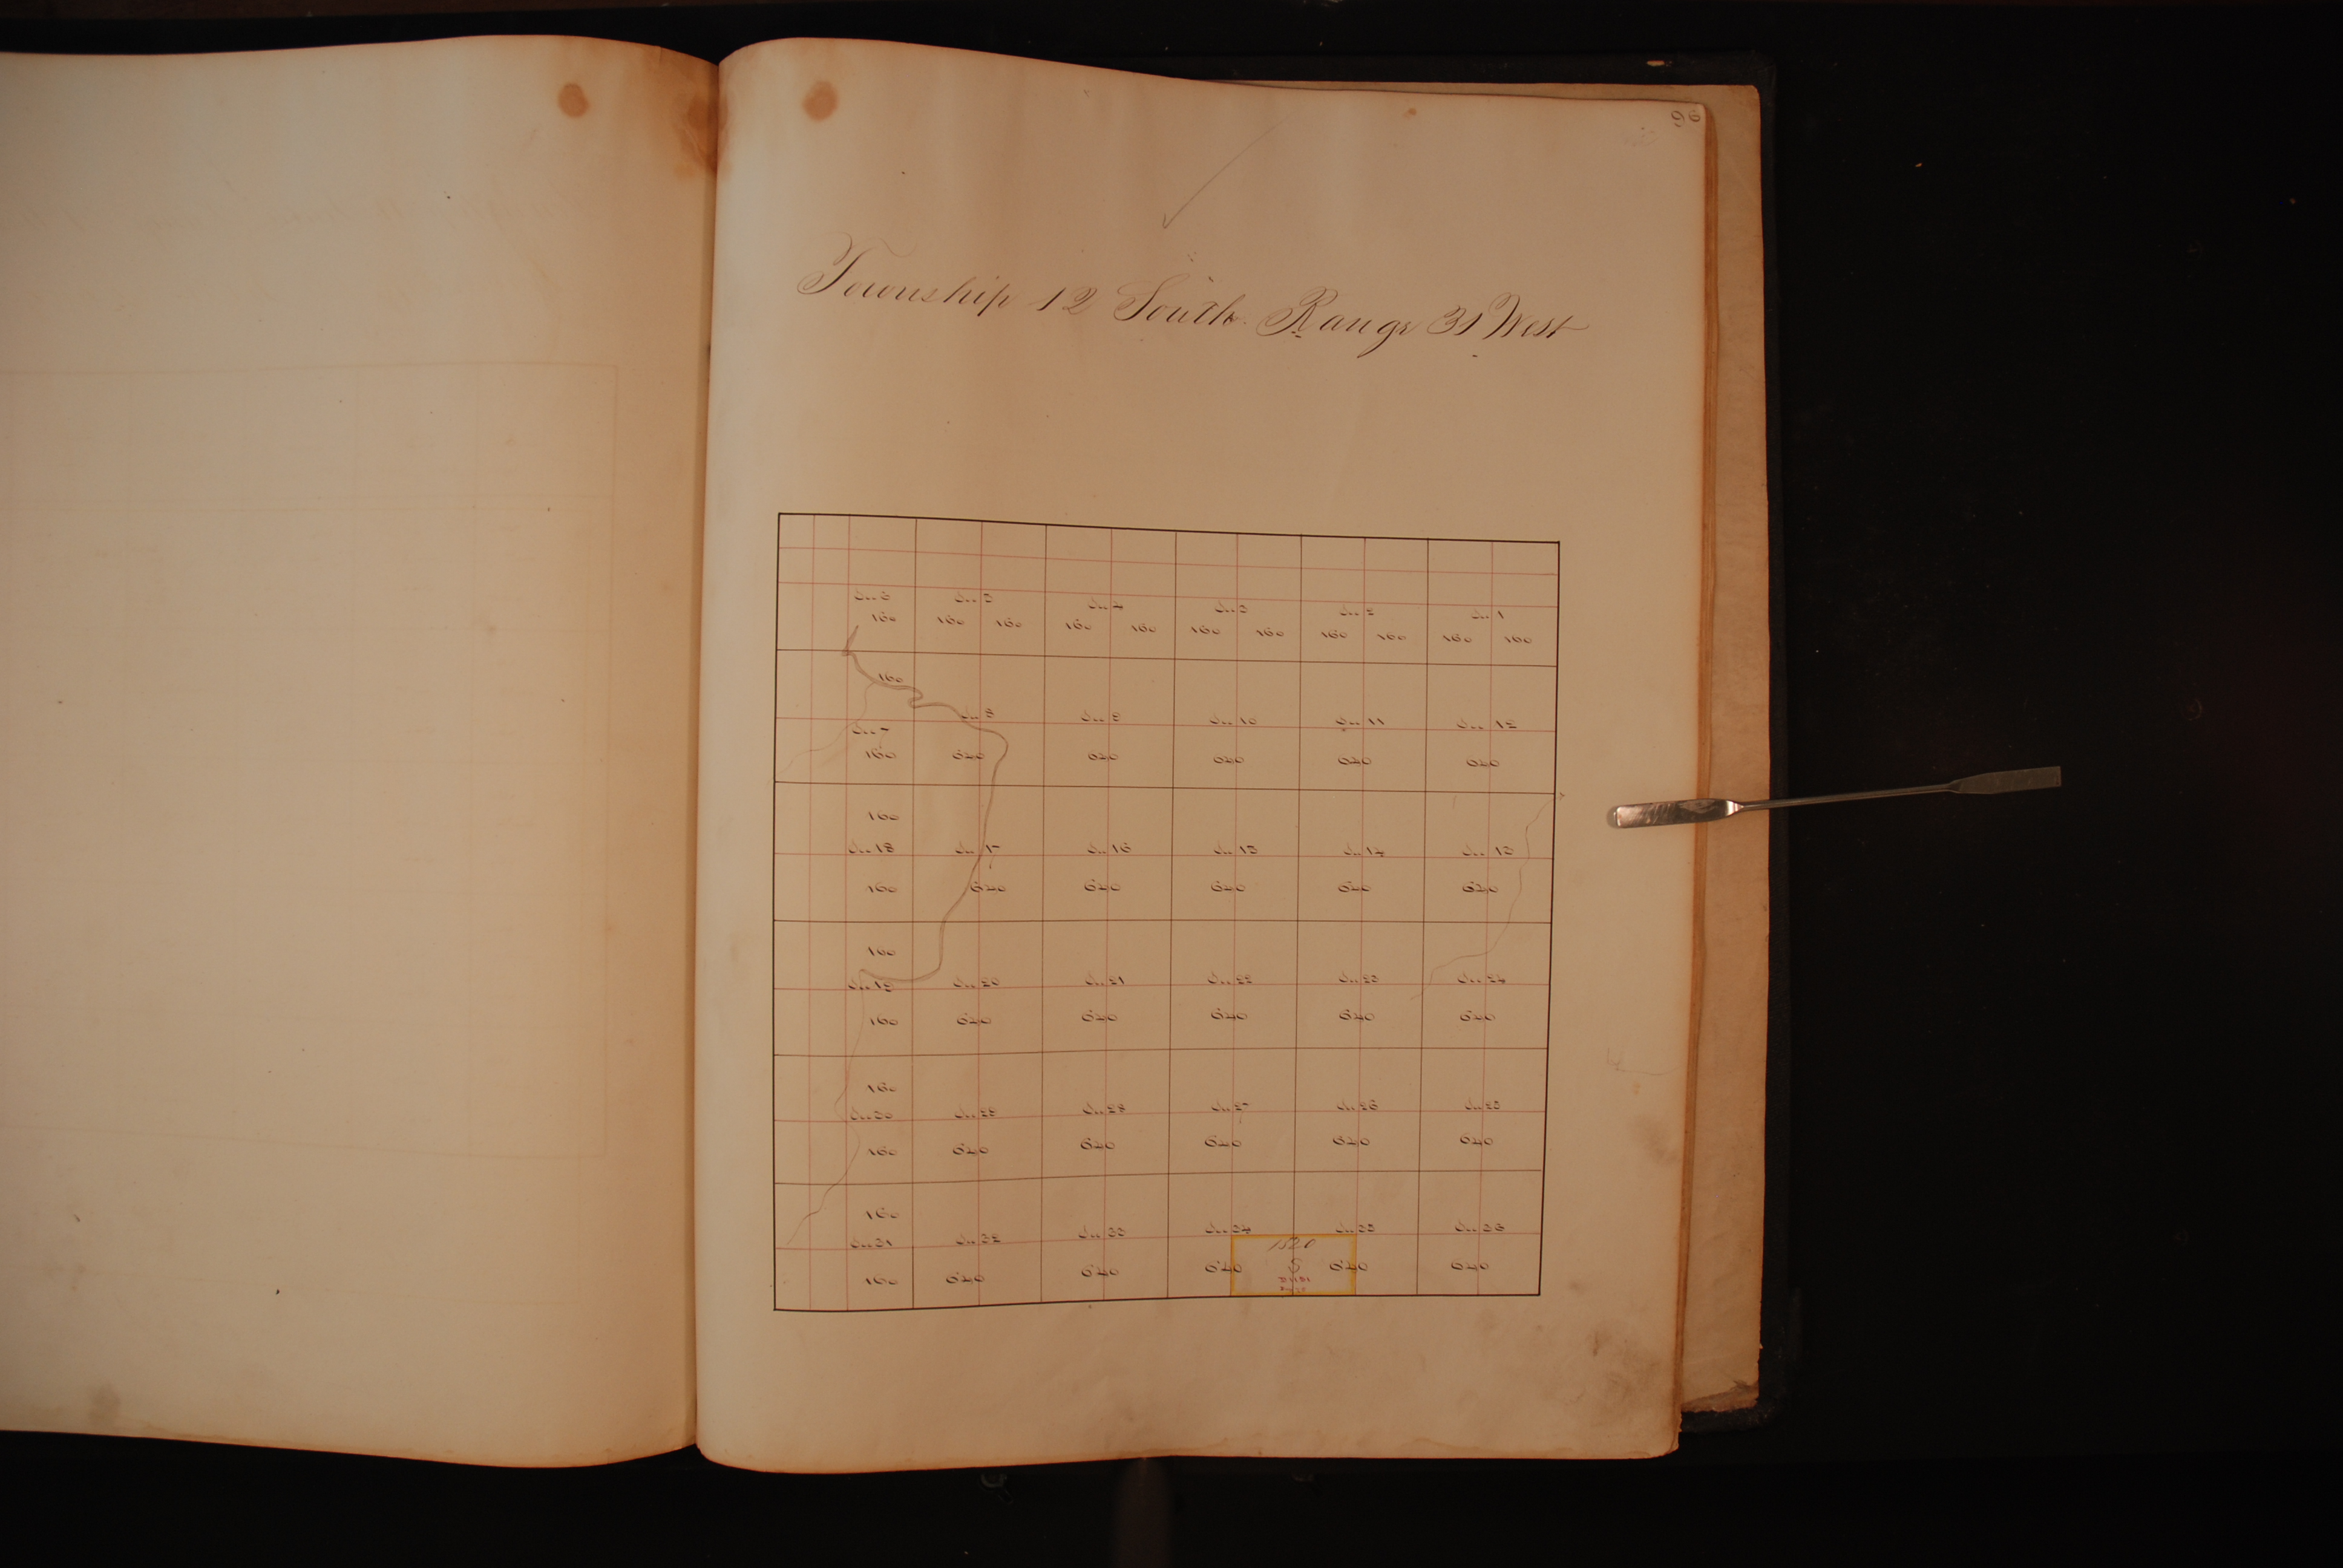 96
Township 12 South Range 31 West
S.. 6 S.. 5 S.. 4 S.. 3 S.. 2 S.. 1
160 160 160 160 160 160 160 160 160 160 160
160
S.. 7 S.. 8 S.. 9 S.. 10 S.. 11 S.. 12
160 640 640 640 640 640
160
S.. 18 S.. 17 S.. 16 S.. 15 S.. 14 S.. 13
160 640 640 640 640 640
160
S.. 19 S.. 20 S.. 21 S.. 22 S.. 23 S.. 24
160 640 640 640 640 640
160
S.. 30 S.. 29 S.. 28 S.. 27 S.. 26 S.. 25
160 640 640 640 640 640
160
S.. 31 S.. 32 S.. 33 S.. 34 S.. 35 S.. 36
1520
160 640 640 640 S 640 640